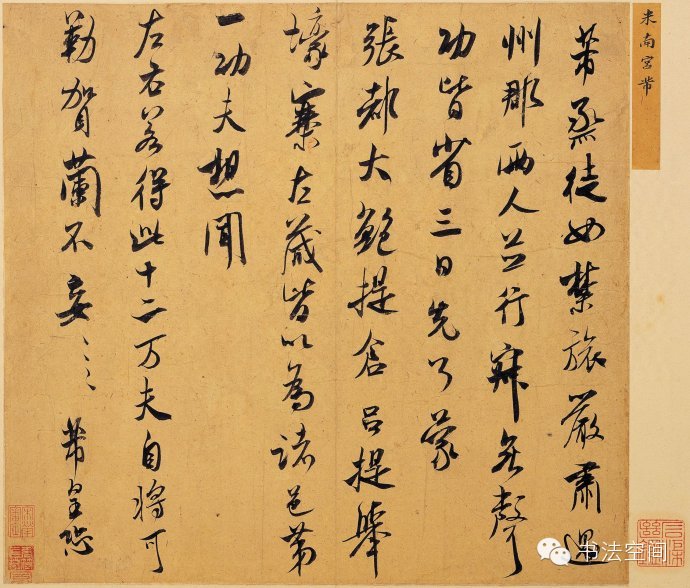 米南宮芾
芾烝徒如禁旅嚴肅過
州郡兩人並行寂無聲
功皆省三日先了蒙
張都大鮑提倉呂提舉
壕寨左藏皆以為諸邑第
一功夫想聞
左右若得此十二万夫自將可
勒賀蘭不妄〻〻芾皇恐
书法空间